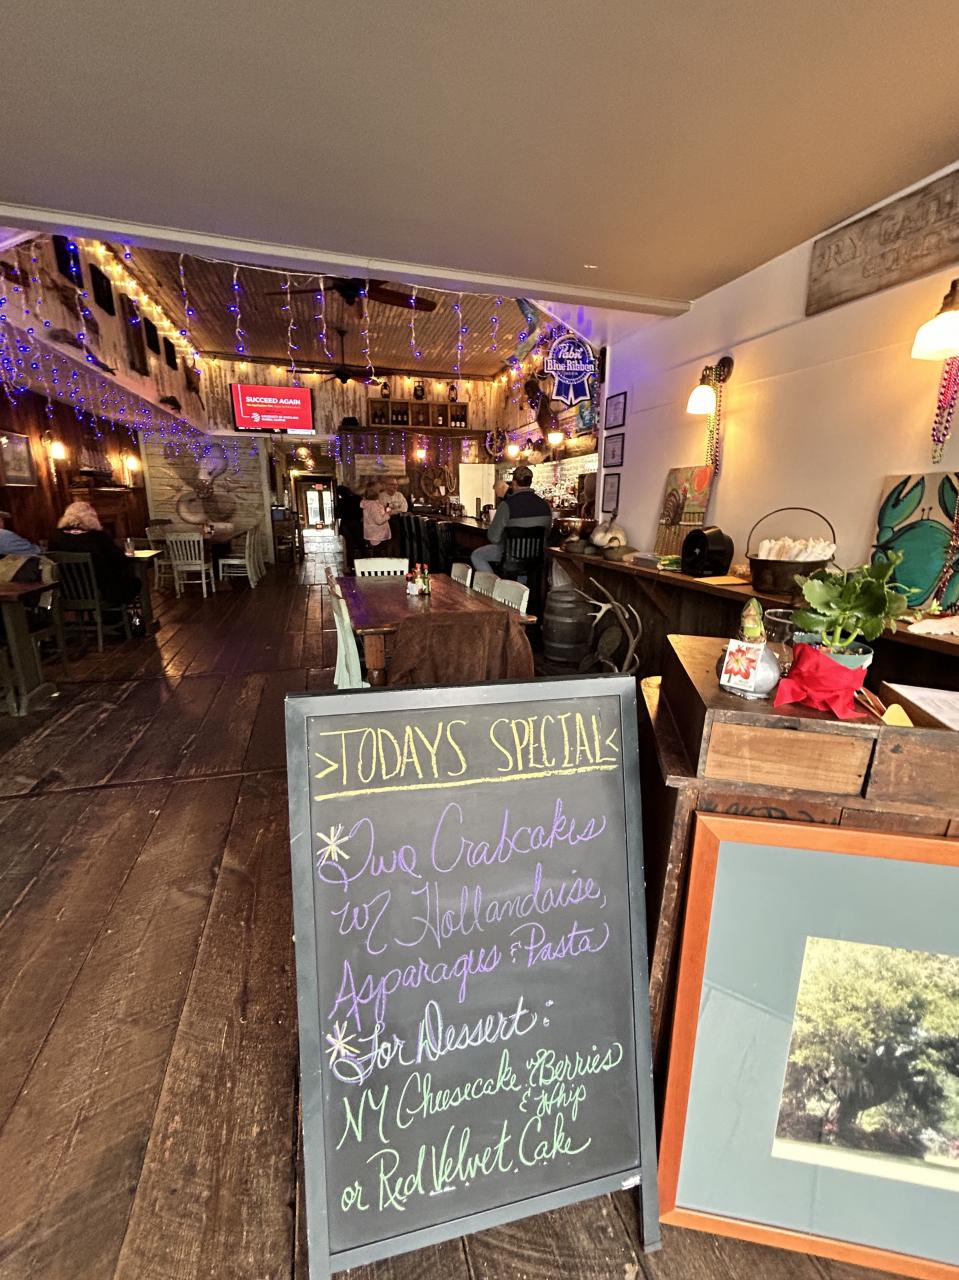 SUCCEED AGAIN
Pabst
Blue Ribbon
>TODAYS SPECIAL<
*Two Crabcakes
w/ Hollandaise,
Asparagus & Pasta
*For Dessert:
NY Cheesecake w/Berries
& Whip
or Red Velvet Cake